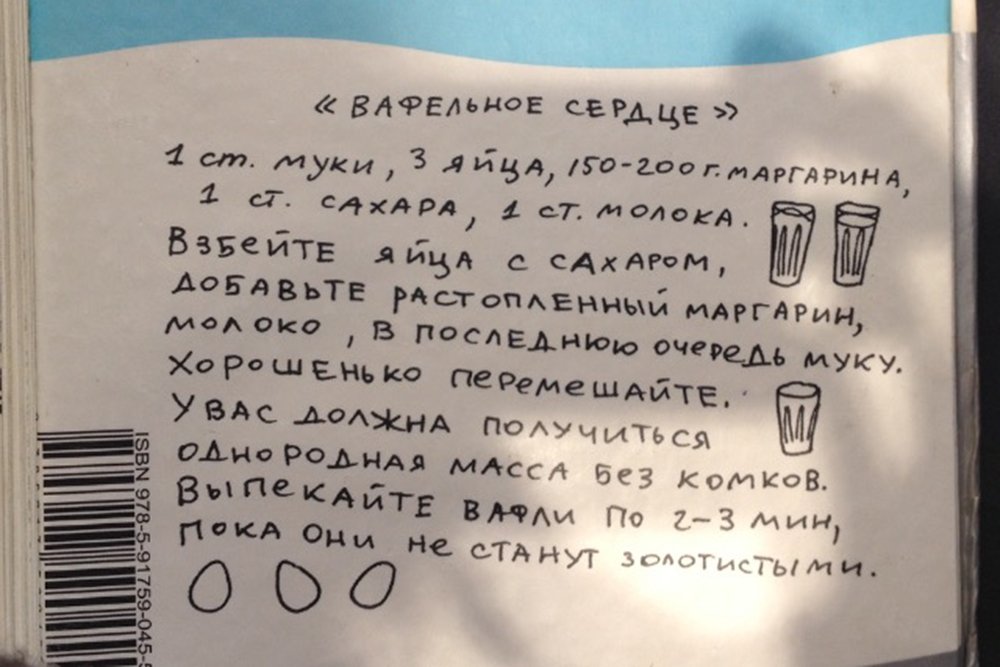 « ВАФЕЛЬНОЕ СЕРДЦЕ »
1 ст. муки, 3 яйца, 150-200 г. маргарина,
1 ст. сахара, 1 ст. молока.
Взбейте яйца с сахаром,
добавьте растопленный маргарин,
молоко, в последнюю очередь муку.
Хорошенько перемешайте.
У вас должна получиться
однородная масса без комков.
Выпекайте вафли по 2-3 мин,
пока они не станут золотистыми.
ISBN 978-5-91759-045-5